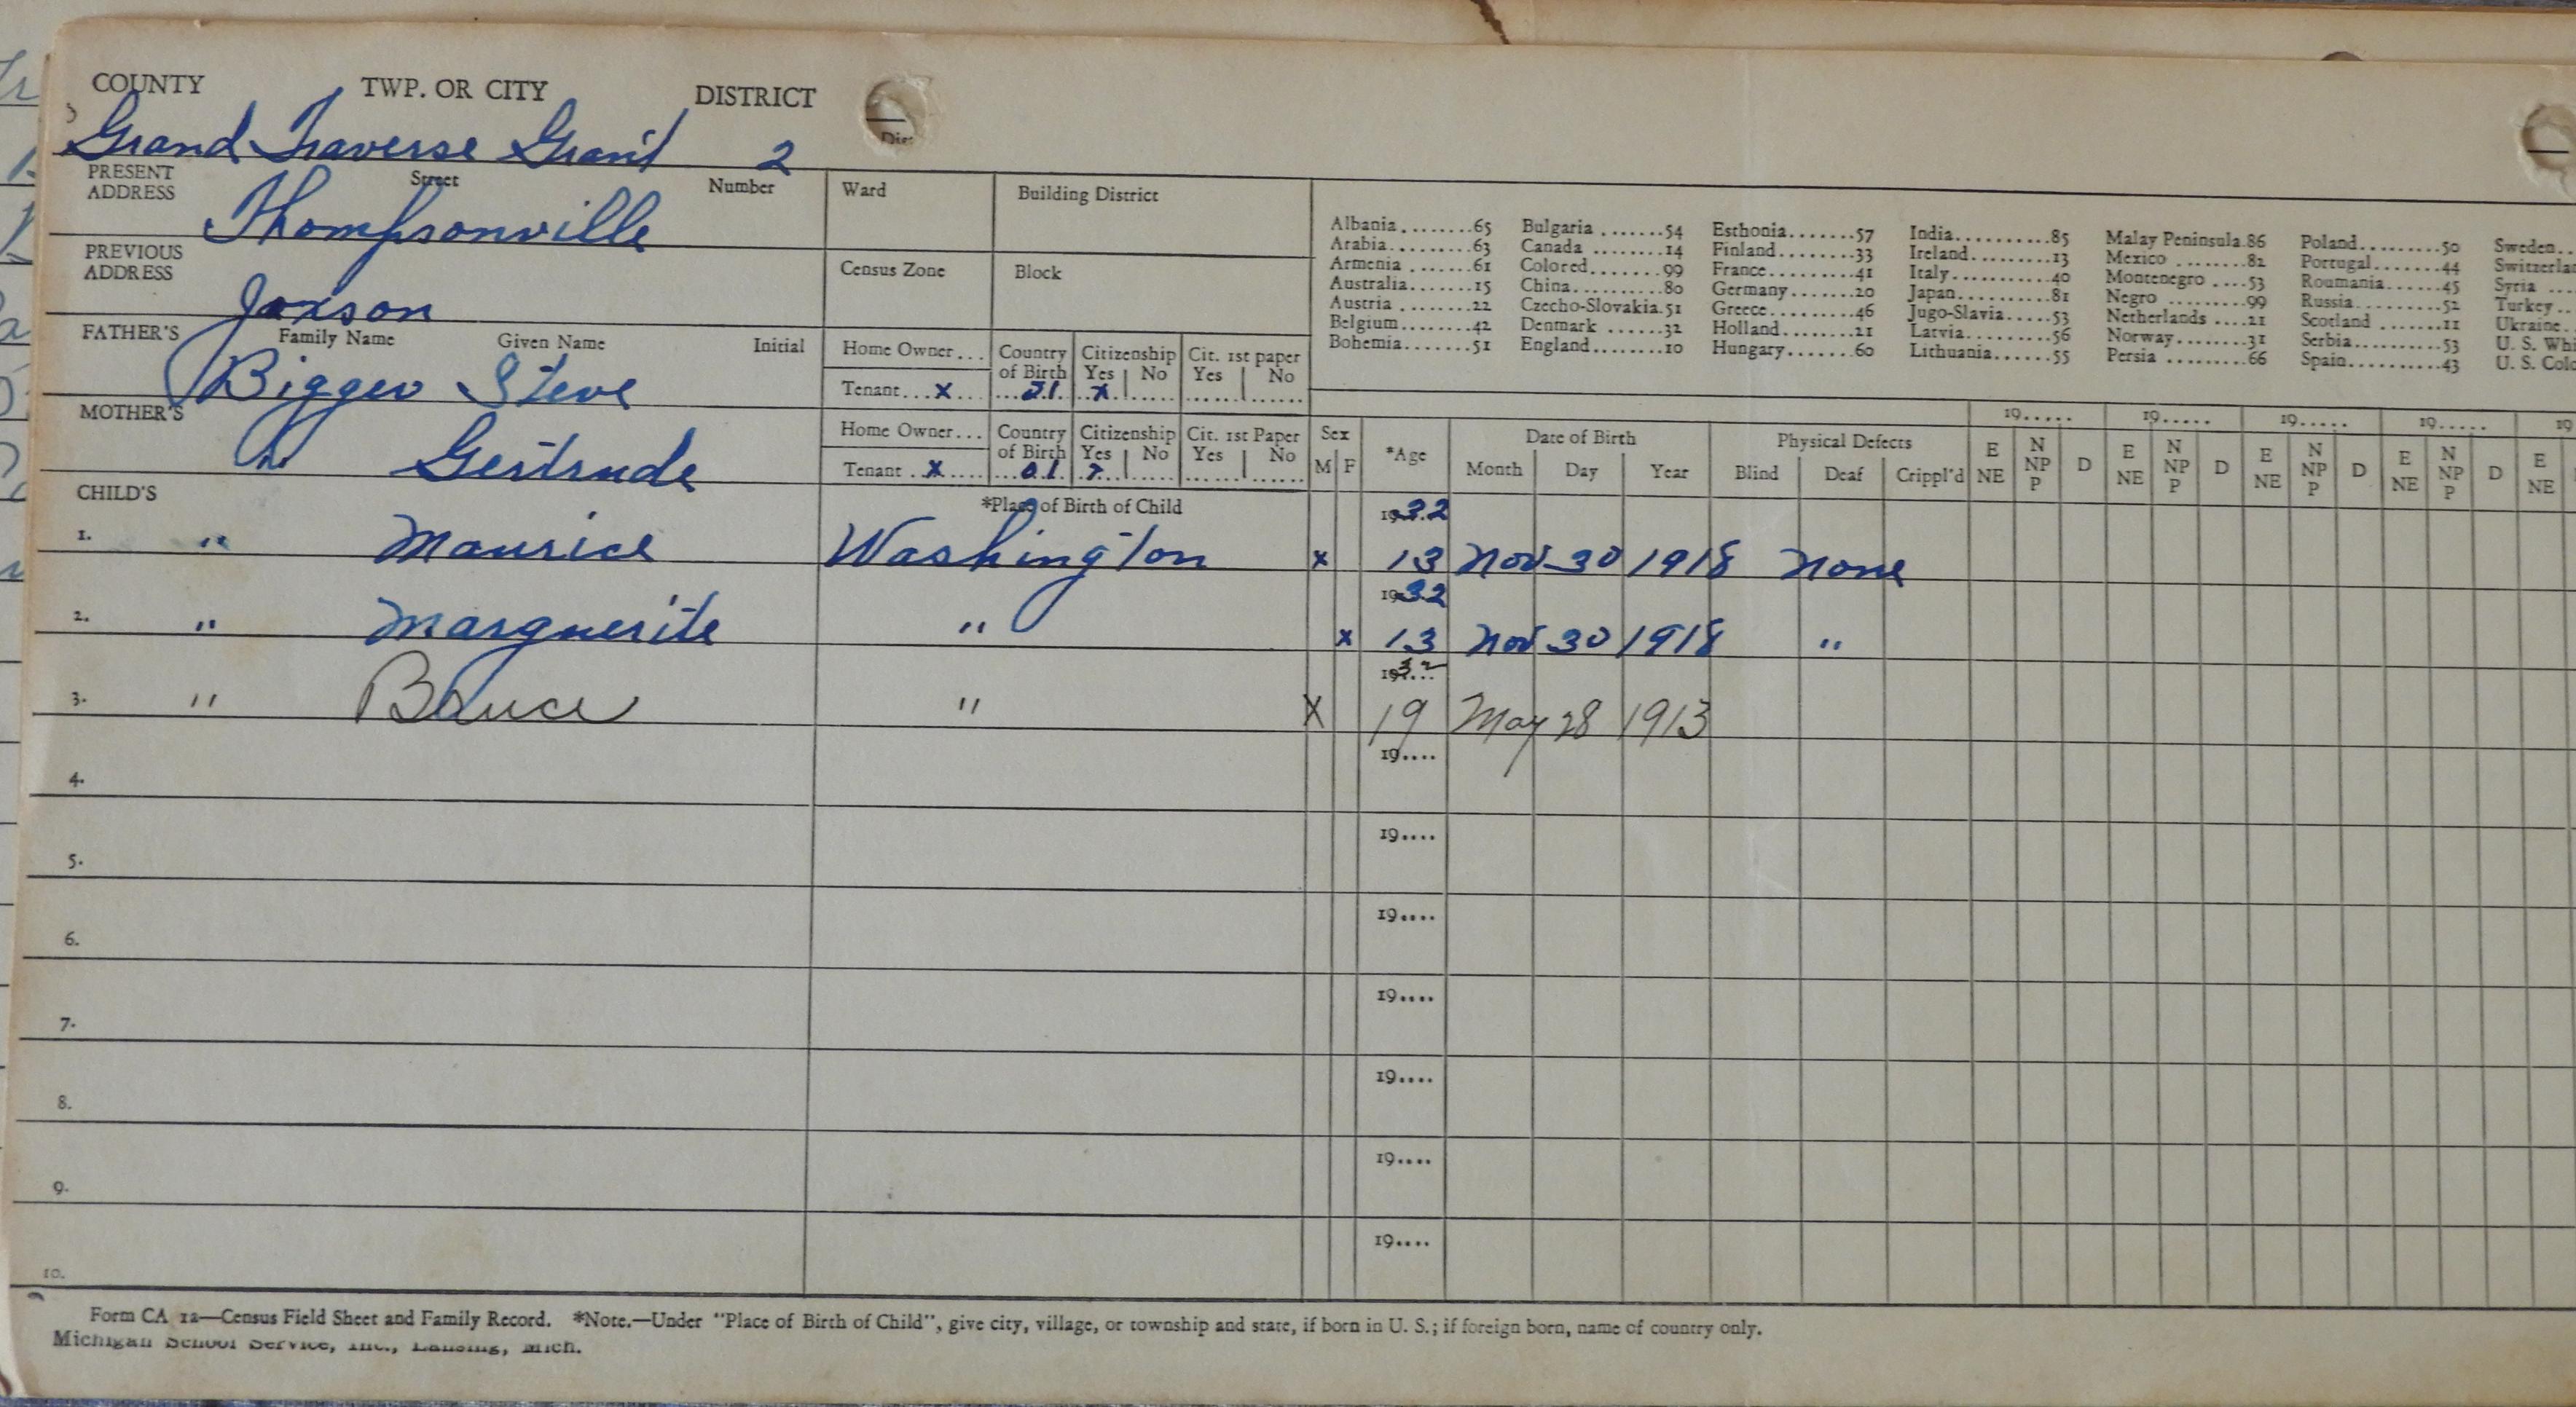 COUNTY TWP. OR CITY DISTRICT
Grand Traverse Grant 2
PRESENT ADDRESS Street Number Ward Building District
Thompsonville
PREVIOUS ADDRESS Census Zone Block
Joxson
Albania........65 Bulgaria.......54 Esthonia.......57 India..........85 Malay Peninsula.86 Poland.........50 Sweden..
Arabia.........63 Canada ........14 Finland........33 Ireland........13 Mexico ........82 Portugal.......44 Switzerla
Armenia .......61 Colored........99 France.........41 Italy..........40 Montenegro ....53 Roumania.......45 Syria ....
Australia......15 China..........80 Germany........20 Japan..........81 Negro .........99 Russia.........52 Turkey..
Austria .......22 Czecho-Slovakia.51 Greece.........46 Jugo-Slavia.....53 Netherlands ....21 Scotland .......11 Ukraine.
Belgium........42 Denmark .......32 Holland........21 Latvia.........56 Norway.........31 Serbia.........53 U. S. Whi
Bohemia........51 England........10 Hungary........60 Lithuania......55 Persia .........66 Spain..........43 U. S. Colo
FATHER'S Family Name Given Name Initial Home Owner... Country of Birth Citizenship Yes No Cit. 1st paper Yes No
Bigger Steve Tenant...x x
MOTHER'S Home Owner... Country of Birth Citizenship Yes No Cit. 1st Paper Yes No
" Gertrude Tenant..x x
19..... 19..... 19..... 19..... 19
Sex M F *Age Date of Birth Month Day Year Physical Defects Blind Deaf Crippl'd E NE N NP P D E NE N NP P D E NE N NP P D E NE N NP P D E NE
CHILD'S *Place of Birth of Child
1932
1. " Maurice Washington x 13 Nov 30 1918 None
1932
2. " Marguerite " x 13 Nov 30 1918 "
1932
3. " Bruce " X 19 May 28 1913
19....
4.
19....
5.
19....
6.
19....
7.
19....
8.
19....
9.
19....
10.
Form CA 12—Census Field Sheet and Family Record. *Note.—Under "Place of Birth of Child", give city, village, or township and state, if born in U. S.; if foreign born, name of country only.
Michigan School Service, Inc., Lansing, Mich.